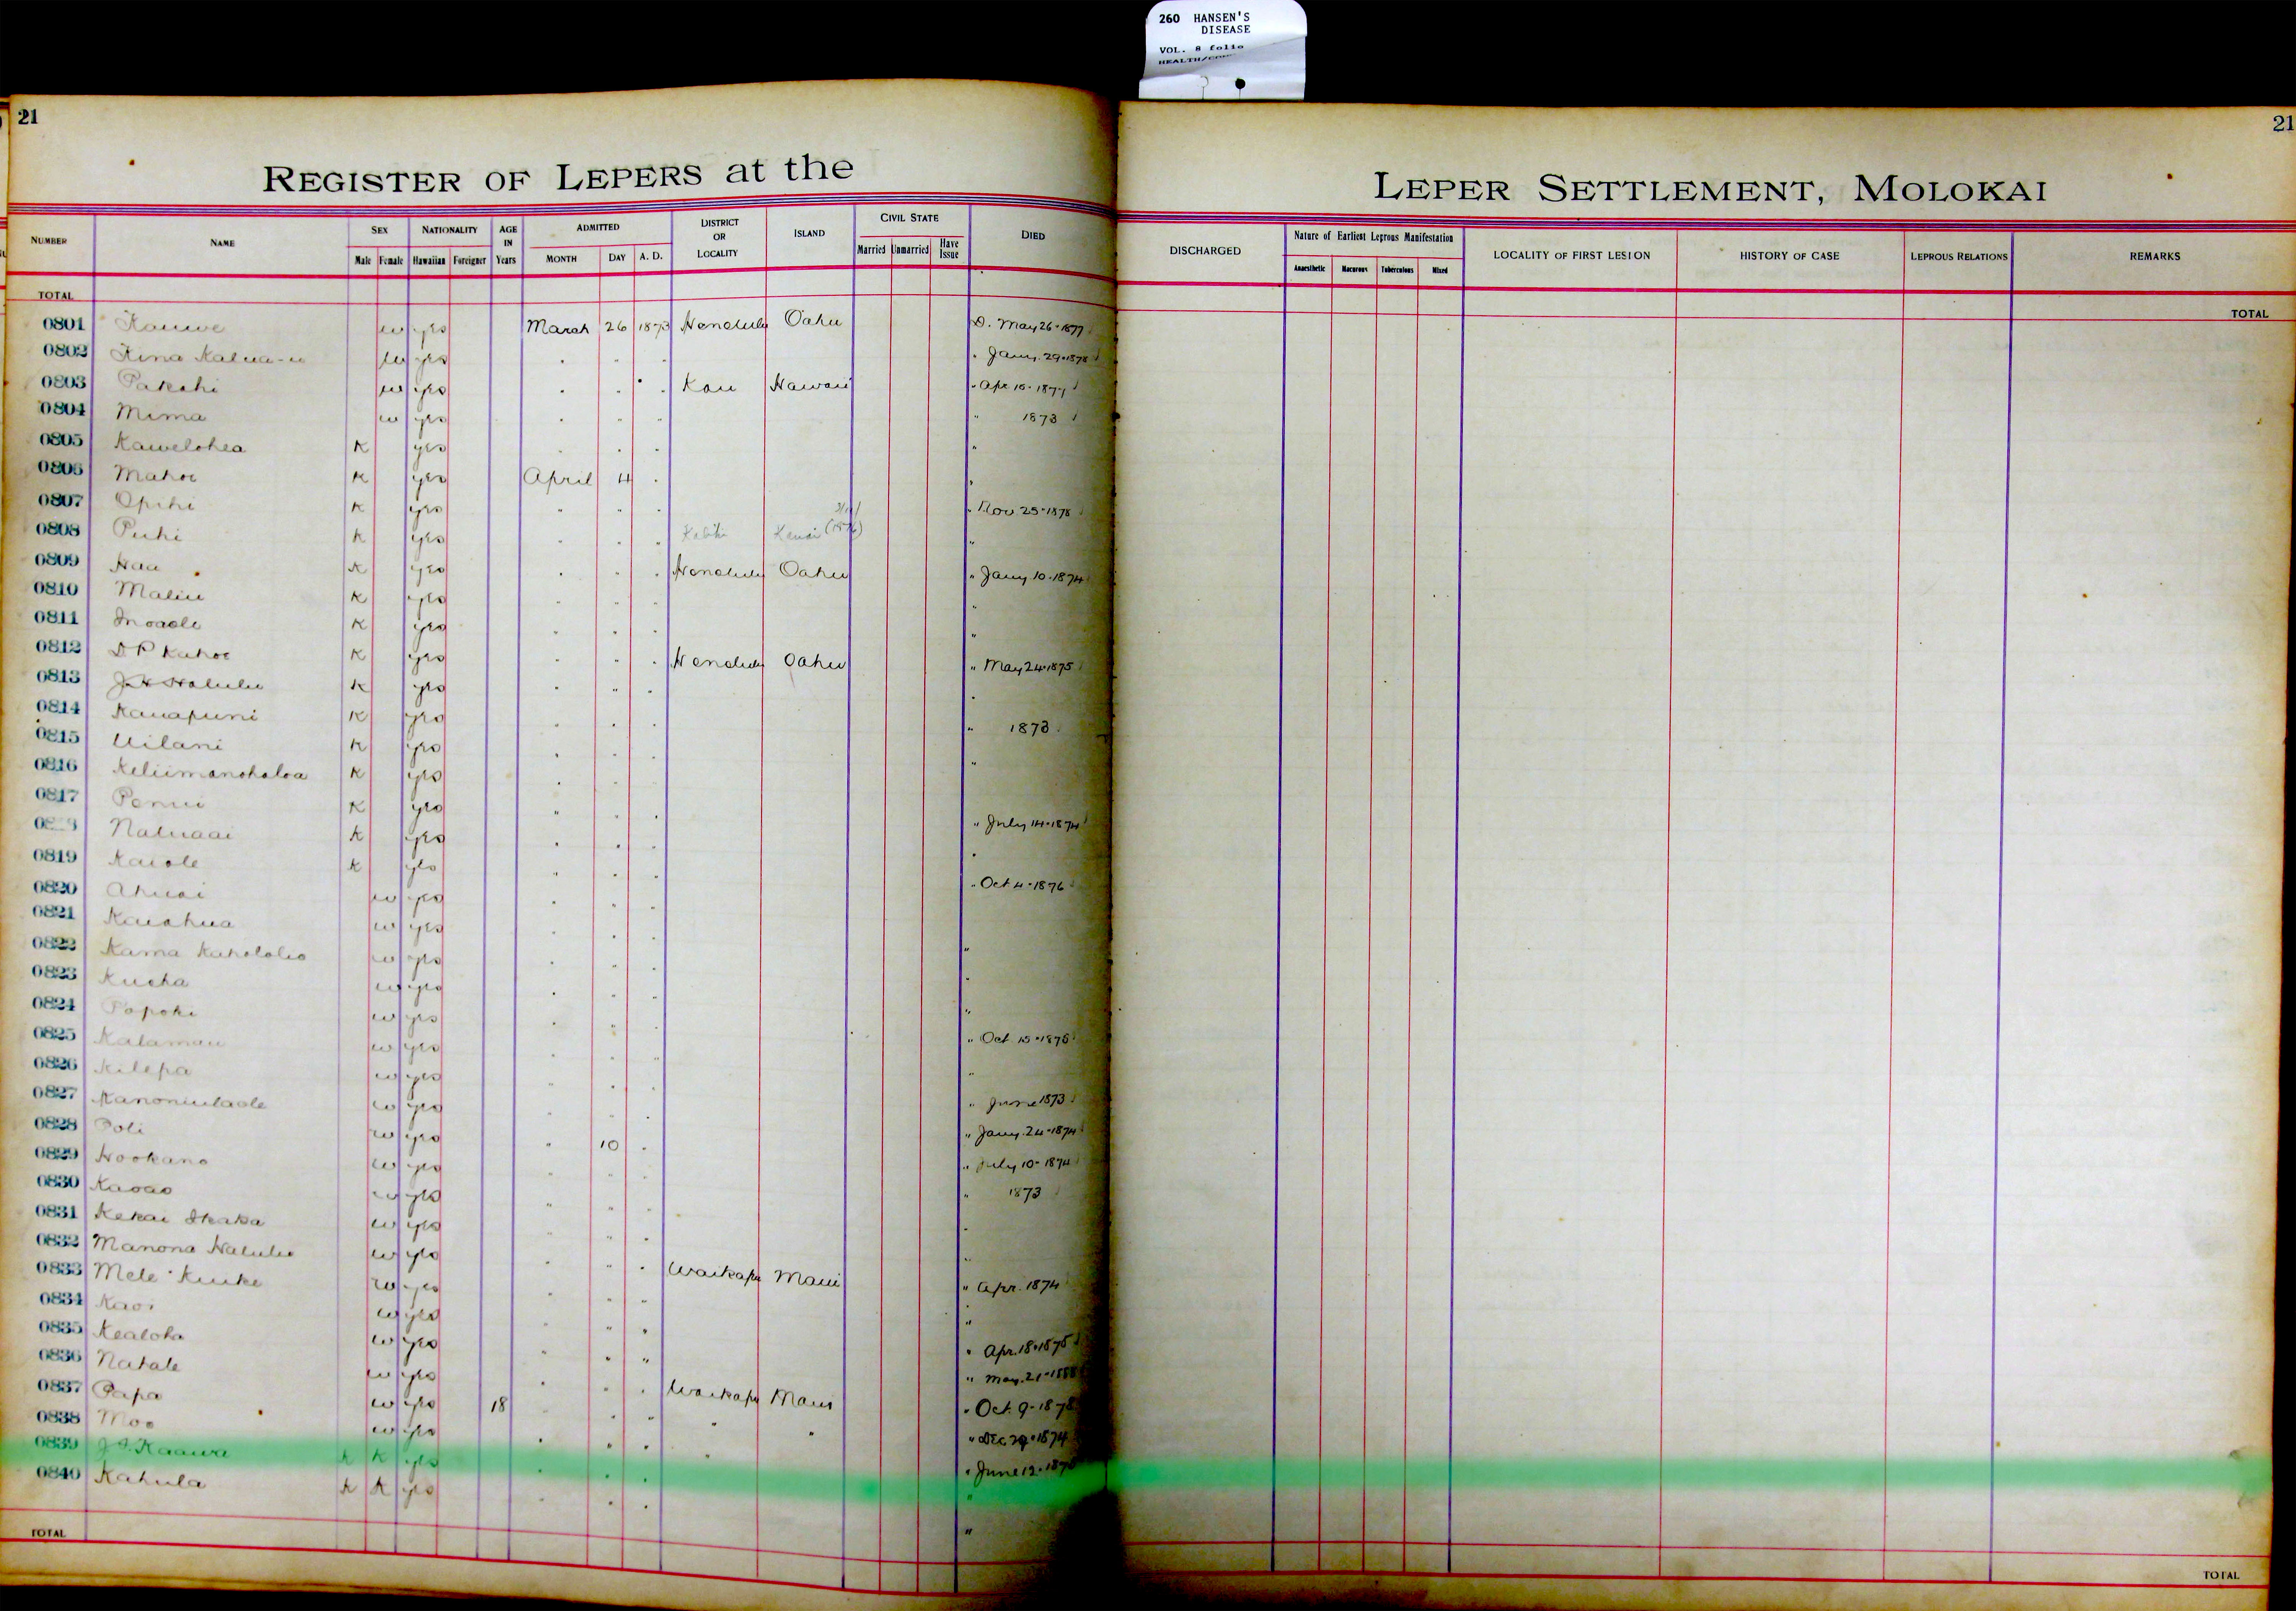 260 HANSEN'S
DISEASE
VOL. 8 folio
21
21
REGISTER OF LEPERS at the
LEPER SETTLEMENT, MOLOKAI
NUMBER NAME SEX Male Female NATIONALITY Hawaiian Foreigner AGE IN Years ADMITTED MONTH DAY A. D. DISTRICT OR LOCALITY ISLAND CIVIL STATE Married Unmarried Have Issue DIED
DISCHARGED Nature of Earliest Leprous Manifestation Anaesthetic Macurous Tuberculous Mixed LOCALITY OF FIRST LESION HISTORY OF CASE LEPROUS RELATIONS REMARKS
TOTAL
TOTAL
0801 Kauwe w yes March 26 1873 Honolulu Oahu D. May 26-1877
0802 Kina w yes " " " " Jany. 29-1878
0803 Pakahi w yes " " " Kau Hawaii " Apr. 16-1877
0804 Mima w yes " " " " 1873
0805 Kawelohea K yes " " " "
0806 Mahoe K yes April 4 " "
0807 Opihi K yes " " " " Nov. 25-1878
0808 Puhi K yes " " " Kauai "
0809 Hau K yes " " " Honolulu Oahu " Jany 10-1874
0810 Maliu K yes " " " "
0811 K yes " " " "
0812 Kahoe K yes " " " Honolulu Oahu " May 24-1875
0813 Halulu K yes " " " "
0814 Kauapuni K yes " " " " 1873
0815 Uilani K yes " " " "
0816 Keliimanohaloa K yes " " "
0817 Penui K yes " " " " July 14-1874
Naluaai K yes " " " "
0819 Kaiole K yes " " " " Oct 4-1876
0820 Ahuai w yes " " "
0821 Kaiahua w yes " " " "
0822 Kama Kahololio w yes " " " "
0823 Kueha w yes " " " "
0824 Popoki w yes " " " " Oct. 15-1875
0825 Kalamau w yes " " " "
0826 Kilepa w yes " " " " June 1873
0827 w yes " " " " Jany. 24-1874
0828 Poli w yes " 10 " " July 10-1874
0829 Hookano w yes " " " " 1873
0830 Kaoao w yes " " " "
0831 Kekai w yes " " " "
0832 Manona Halulu w yes " " " Waikapu Maui " Apr. 1874
0833 Mele Kuike w yes " " " "
0834 w yes " " " " Apr. 18-1875
0835 Kealoha w yes " " " " May. 21-1888
0836 Nakale w yes " " " Waikapu Maui " Oct. 9-1878
0837 Papa w yes 18 " " " " " " Dec. 29-1874
0838 Moo w yes " " " " " June 12-1875
0839 Kaawa K K yes " " " "
0840 Kahula K K yes " " " "
TOTAL
TOTAL